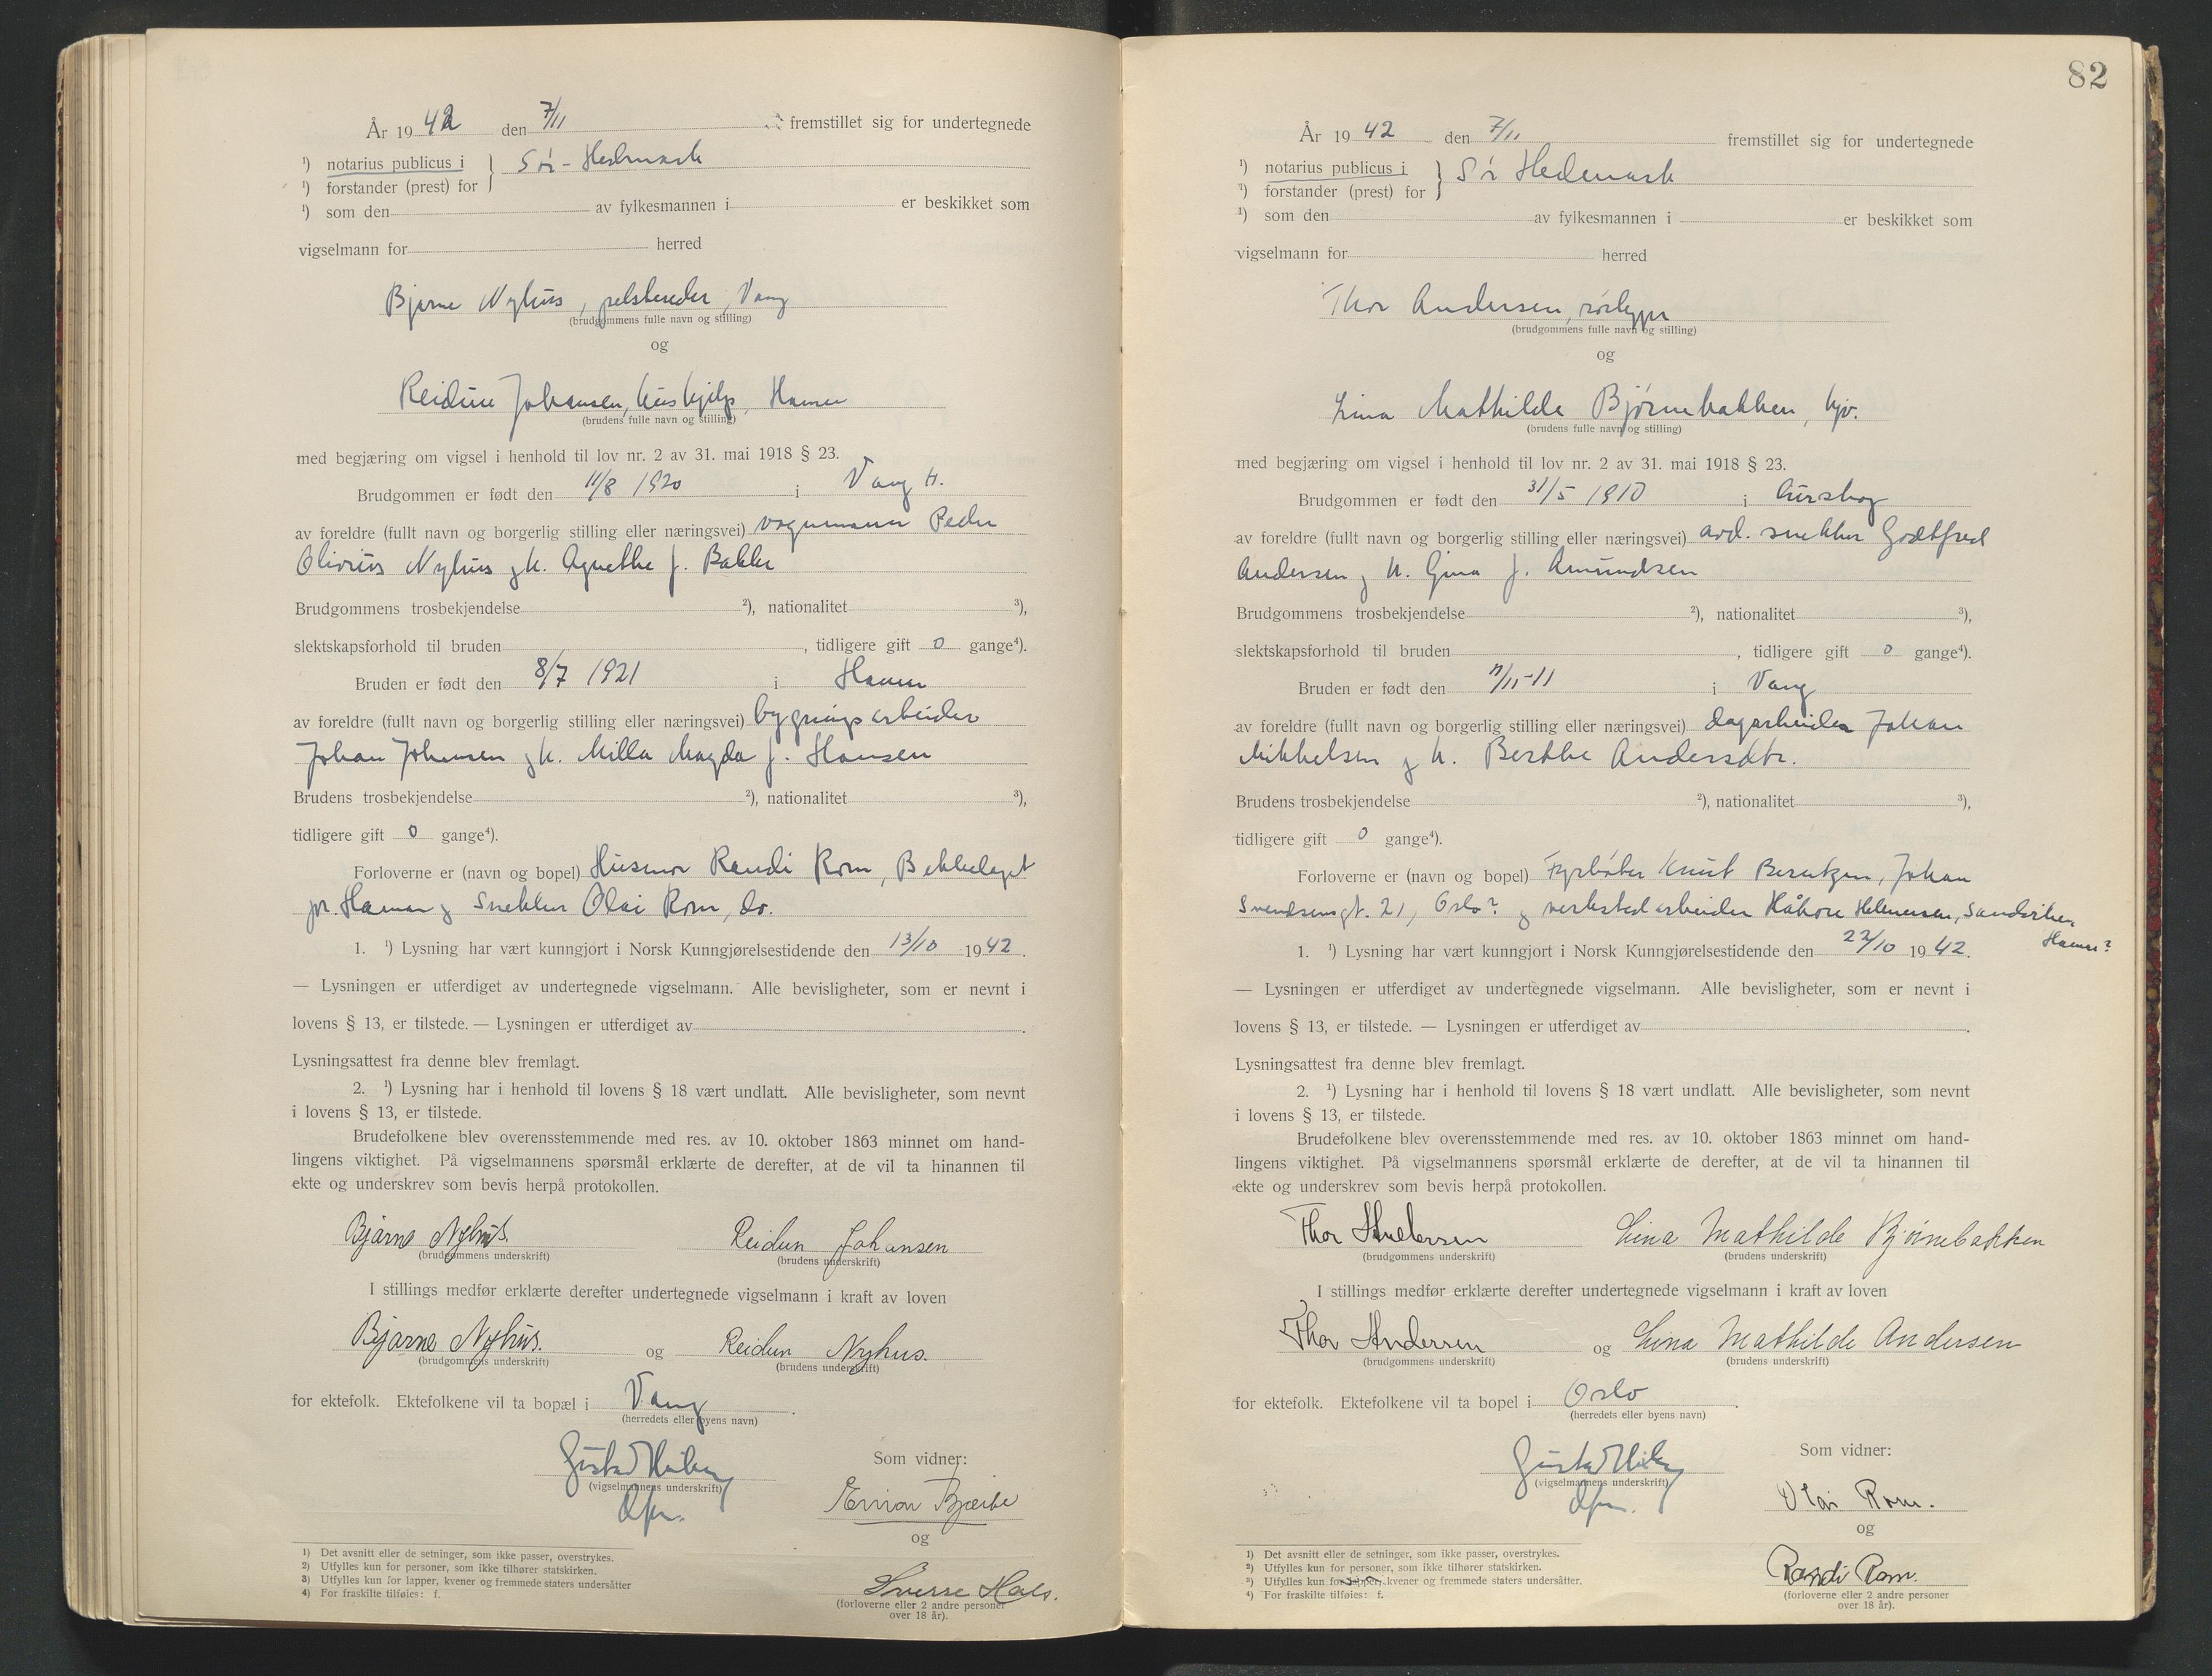 År 1942 den 7/11 fremstillet sig for undertegnede
¹) notarius publicus i } Sør-Hedmark
¹) forstander (prest) for
¹) som den av fylkesmannen i er beskikket som
vigselmann for herred
Bjarne Nyhus, pelsbereder, Vang
(brudgommens fulle navn og stilling)
og
Reidun Johansen, hushjelp, Hamar
(brudens fulle navn og stilling)
med begjæring om vigsel i henhold til lov nr. 2 av 31. mai 1918 § 23.
Brudgommen er født den 11/8 1920 i Vang H.
av foreldre (fullt navn og borgerlig stilling eller næringsvei) vognmann Peder
Olivius Nyhus og h. Agnethe f. Bakke
Brudgommens trosbekjendelse ²), nationalitet ³),
slektskapsforhold til bruden , tidligere gift 0 gange⁴).
Bruden er født den 8/7 1921 i Hamar
av foreldre (fullt navn og borgerlig stilling eller næringsvei) bygningsarbeider
Johan Johansen og h. Milla Magda f. Hansen
Brudens trosbekjendelse ²), nationalitet ³),
tidligere gift 0 gange⁴).
Forloverne er (navn og bopel) Husmor Randi Rom, Bekkelaget
pr. Hamar og Snekker Olai Rom, do.
1. ¹) Lysning har vært kunngjort i Norsk Kunngjørelsestidende den 13/10 1942.
— Lysningen er utferdiget av undertegnede vigselmann. Alle bevisligheter, som er nevnt i
lovens § 13, er tilstede. — Lysningen er utferdiget av .
Lysningsattest fra denne blev fremlagt.
2. ¹) Lysning har i henhold til lovens § 18 vært undlatt. Alle bevisligheter, som nevnt
i lovens § 13, er tilstede.
Brudefolkene blev overensstemmende med res. av 10. oktober 1863 minnet om hand-
lingens viktighet. På vigselmannens spørsmål erklærte de derefter, at de vil ta hinannen til
ekte og underskrev som bevis herpå protokollen.
Bjarne Nyhus. Reidun Johansen
(brudgommens underskrift) (brudens underskrift)
I stillings medfør erklærte derefter undertegnede vigselmann i kraft av loven
Bjarne Nyhus. og Reidun Nyhus.
(brudgommens underskrift) (brudens underskrift)
for ektefolk. Ektefolkene vil ta bopæl i Vang .
(herredets eller byens navn)
Som vidner:
(vigselmannens underskrift)
og
Sverre Hals.
(forloverne eller 2 andre personer
over 18 år).
¹) Det avsnitt eller de setninger, som ikke passer, overstrykes.
²) Utfylles kun for personer, som ikke tilhører statskirken.
³) Utfylles kun for lapper, kvener og fremmede staters undersåtter
⁴) For fraskilte tilføies: f.
82
År 1942 den 7/11 fremstillet sig for undertegnede
¹) notarius publicus i } Sør Hedmark
¹) forstander (prest) for
¹) som den av fylkesmannen i er beskikket som
vigselmann for herred
Thor Andersen, rørlegger
(brudgommens fulle navn og stilling)
og
Lina Mathilde Bjørnebakken, hjv.
(brudens fulle navn og stilling)
med begjæring om vigsel i henhold til lov nr. 2 av 31. mai 1918 § 23.
Brudgommen er født den 31/5 1910 i Aurskog
av foreldre (fullt navn og borgerlig stilling eller næringsvei) avd. snekker Godtfred
Andersen og h. Gina f. Amundsen
Brudgommens trosbekjendelse ²), nationalitet ³),
slektskapsforhold til bruden , tidligere gift 0 gange⁴).
Bruden er født den 11/11-11 i Vang
av foreldre (fullt navn og borgerlig stilling eller næringsvei) dagarbeider Johan
Mikkelsen og h. Berthe Andersdtr.
Brudens trosbekjendelse ²), nationalitet ³),
tidligere gift 0 gange⁴).
Forloverne er (navn og bopel) Fyrbøter Knut Berntzen, Johan
Svendsensgt. 21, Oslo? og verkstedarbeider Håkon Helmersen, Sandviken
Hamar?
1. ¹) Lysning har vært kunngjort i Norsk Kunngjørelsestidende den 22/10 1942.
— Lysningen er utferdiget av undertegnede vigselmann. Alle bevisligheter, som er nevnt i
lovens § 13, er tilstede. — Lysningen er utferdiget av .
Lysningsattest fra denne blev fremlagt.
2. ¹) Lysning har i henhold til lovens § 18 vært undlatt. Alle bevisligheter, som nevnt
i lovens § 13, er tilstede.
Brudefolkene blev overensstemmende med res. av 10. oktober 1863 minnet om hand-
lingens viktighet. På vigselmannens spørsmål erklærte de derefter, at de vil ta hinannen til
ekte og underskrev som bevis herpå protokollen.
Thor Andersen Lina Mathilde Bjørnebakken
(brudgommens underskrift) (brudens underskrift)
I stillings medfør erklærte derefter undertegnede vigselmann i kraft av loven
Thor Andersen og Lina Mathilde Andersen
(brudgommens underskrift) (brudens underskrift)
for ektefolk. Ektefolkene vil ta bopel i Oslo .
(herredets eller byens navn)
Som vidner:
(vigselmannens underskrift)
Olai Rom.
og
Randi Rom.
(forloverne eller 2 andre personer
over 18 år).
¹) Det avsnitt eller de setninger, som ikke passer, overstrykes.
²) Utfylles kun for personer, som ikke tilhører statskirken.
³) Utfylles kun for lapper, kvener og fremmede staters undersåtter.
⁴) For fraskilte tilføies: f.